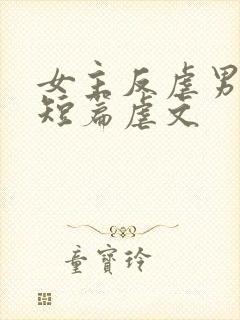 女主反虐男
短篇虐文
童寶玲